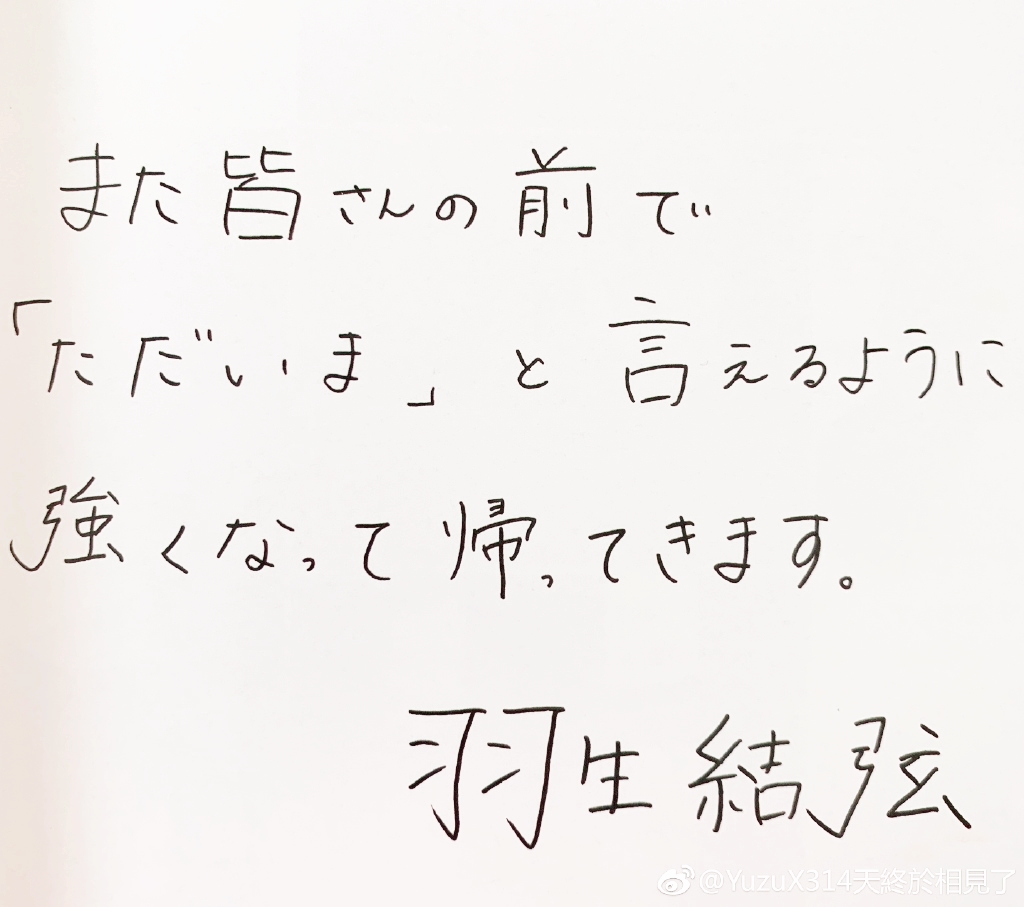 また皆さんの前で
「ただいま」と言えるように
強くなって帰ってきます。
羽生結弦
@YuzuX314天終於相見了